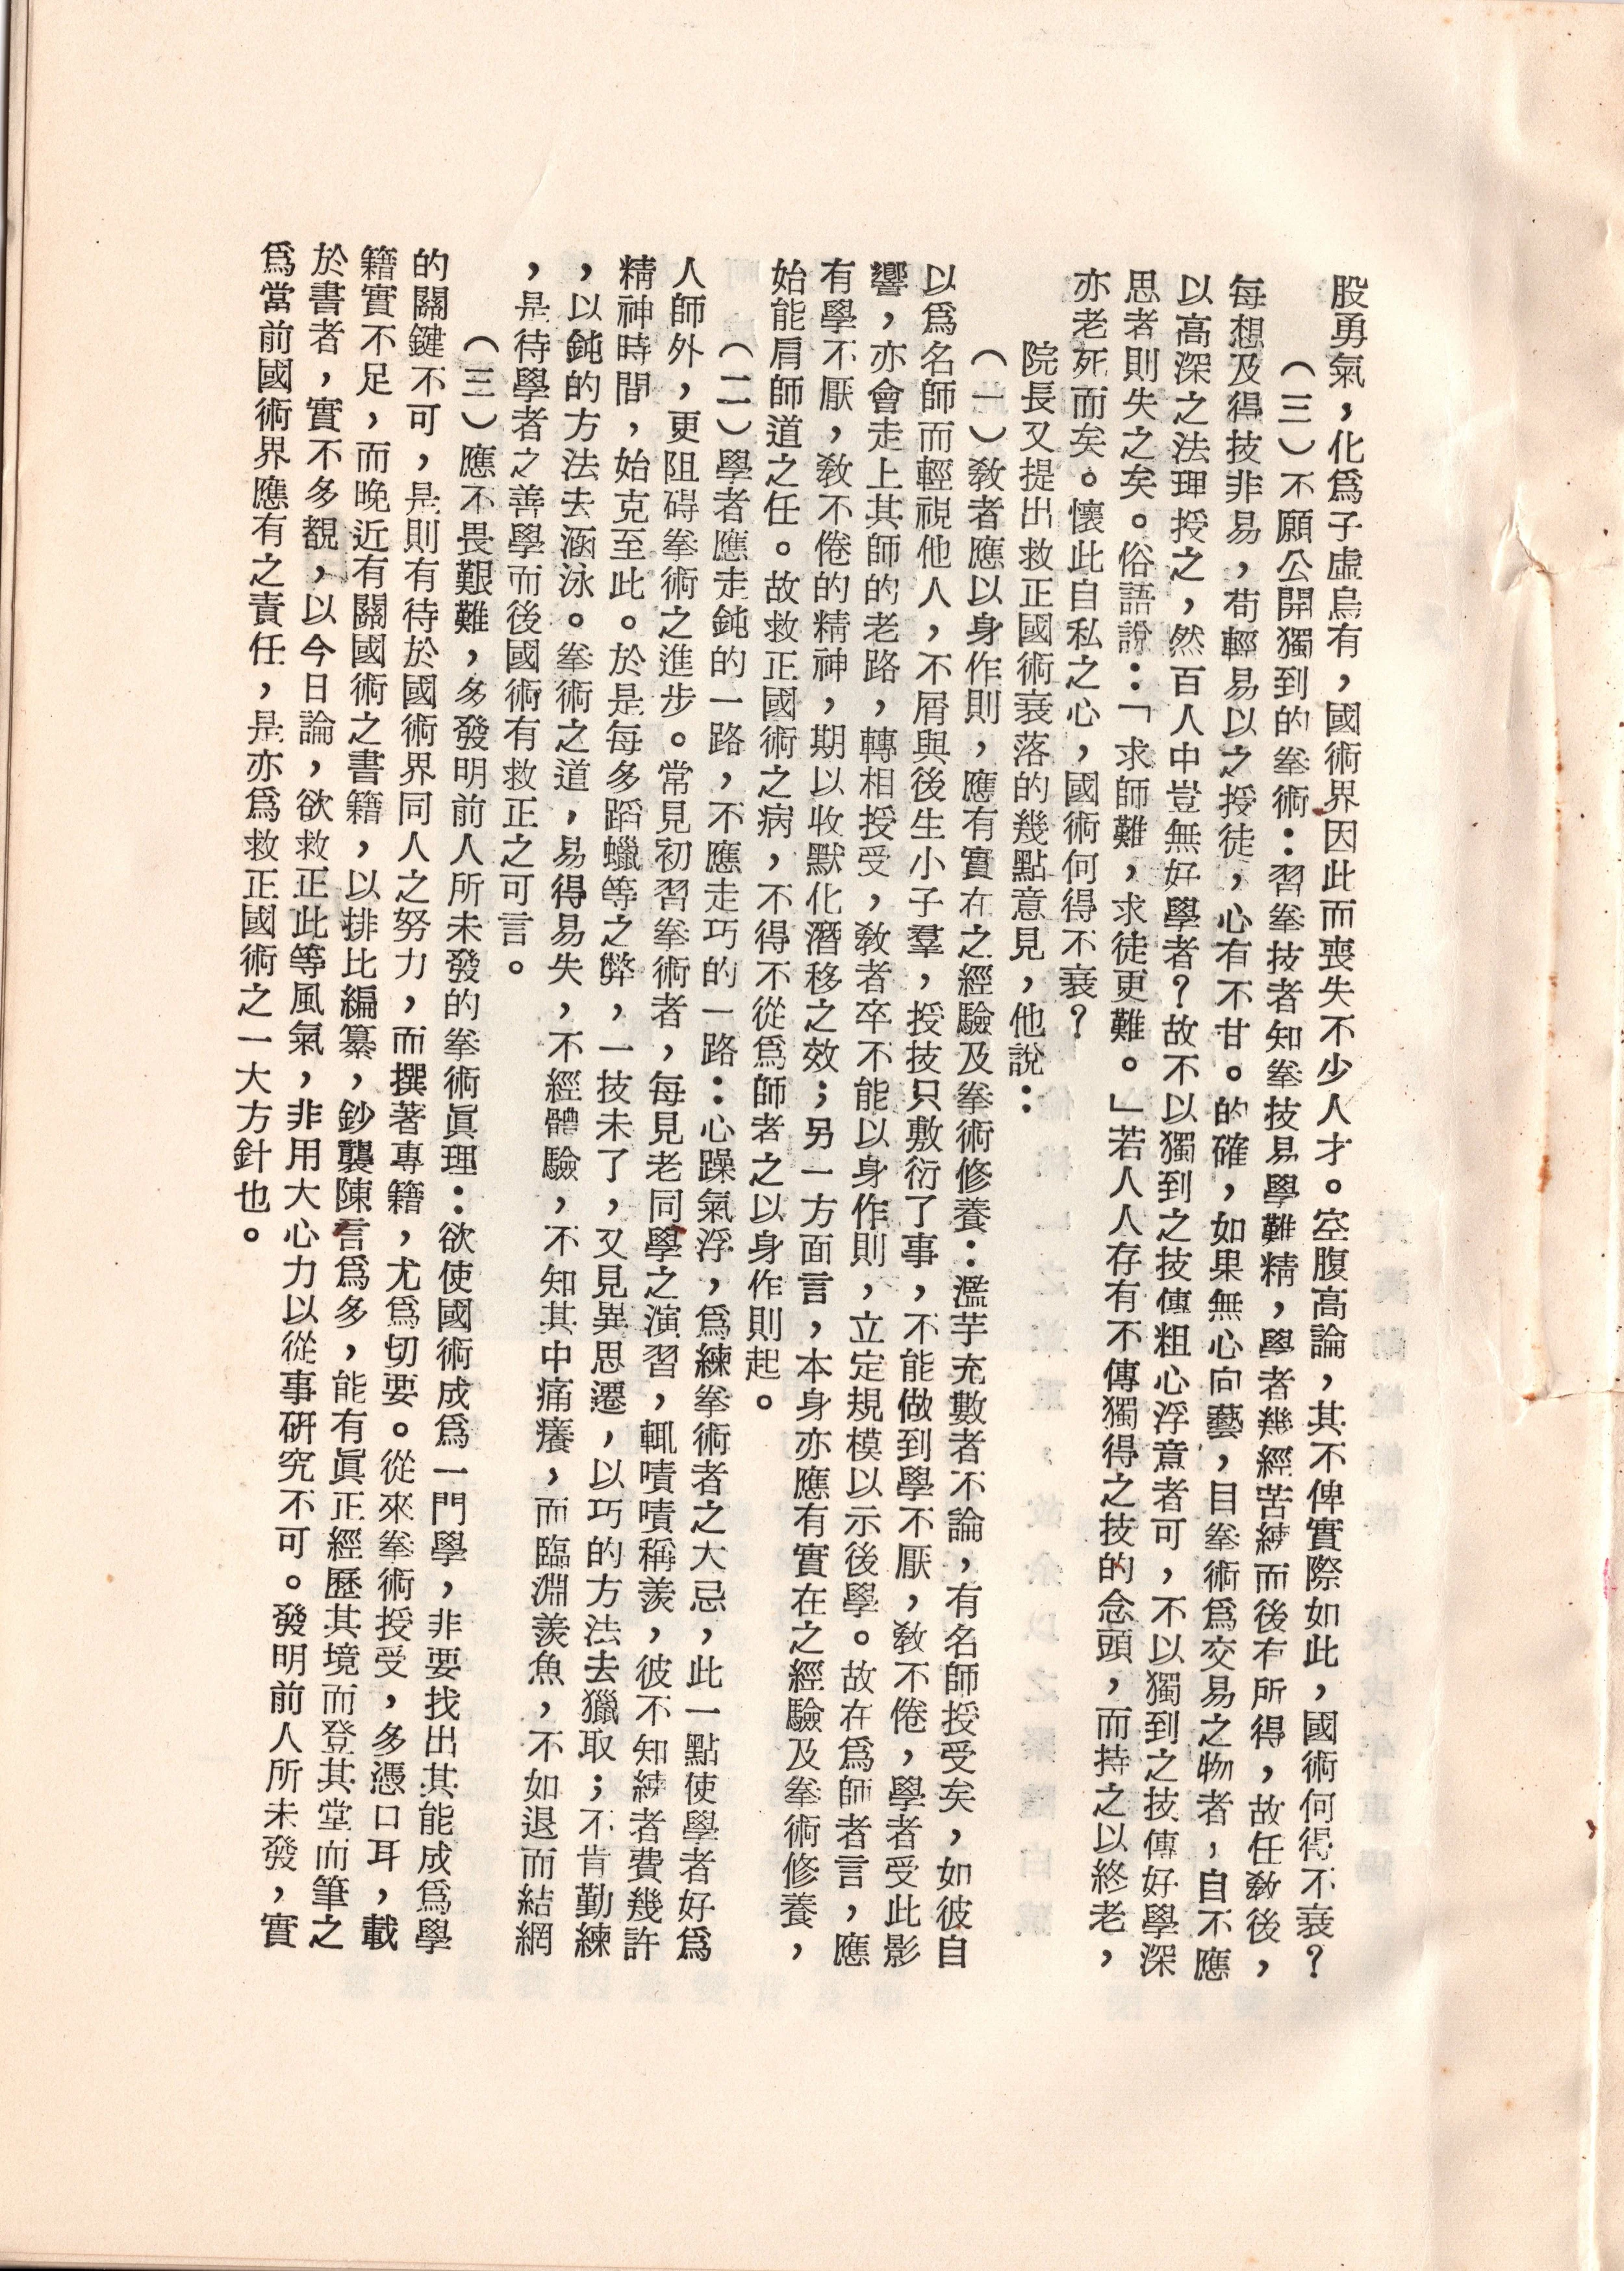 股勇氣，化爲子虛烏有，國術界因此而喪失不少人才。空腹高論，其不俾實際如此，國術何得不衰？
（三）不願公開獨到的拳術：習拳技者知拳技易學難精，學者幾經苦練而後有所得，故任教後，
每想及得技非易，苟輕易以之授徒，心有不甘。的確，如果無心向藝，目拳術爲交易之物者，自不應
以高深之法理授之，然百人中豈無好學者？故不以獨到之技傳粗心浮意者可，不以獨到之技傳好學深
思者則失之矣。俗語說：「求師難，求徒更難。」若人人存有不傳獨得之技的念頭，而持之以終老，
亦老死而矣。懷此自私之心，國術何得不衰？
院長又提出救正國術衰落的幾點意見，他說：
（一）敎者應以身作則，應有實在之經驗及拳術修養：濫芋充數者不論，有名師授受矣，如彼自
以爲名師而輕視他人，不屑與後生小子羣，授技只敷衍了事，不能做到學不厭，敎不倦，學者受此影
響，亦會走上其師的老路，轉相授受，敎者卒不能以身作則，立定規模以示後學。故在爲師者言，應
有學不厭，敎不倦的精神，期以收默化潛移之效；另一方面言，本身亦應有實在之經驗及拳術修養，
始能肩師道之任。故救正國術之病，不得不從爲師者之以身作則起。
（二）學者應走鈍的一路，不應走巧的一路：心躁氣浮，爲練拳術者之大忌，此一點使學者好爲
人師外，更阻碍拳術之進步。常見初習拳術者，每見老同學之演習，輒嘖嘖稱羨，彼不知練者費幾許
精神時間，始克至此。於是每多蹈蠟等之弊，一技未了，又見異思遷，以巧的方法去獵取；不肯勤練
，以鈍的方法去涵泳。拳術之道，易得易失，不經體驗，不知其中痛癢，而臨淵羨魚，不如退而結網
，是待學者之善學而後國術有救正之可言。
（三）應不畏艱難，多發明前人所未發的拳術眞理：欲使國術成爲一門學，非要找出其能成爲學
的關鍵不可，是則有待於國術界同人之努力，而撰著專籍，尤爲切要。從來拳術授受，多憑口耳，載
籍實不足，而晚近有關國術之書籍，以排比編纂，鈔襲陳言爲多，能有眞正經歷其境而登其堂而筆之
於書者，實不多覩，以今日論，欲救正此等風氣，非用大心力以從事研究不可。發明前人所未發，實
爲當前國術界應有之責任，是亦爲救正國術之一大方針也。